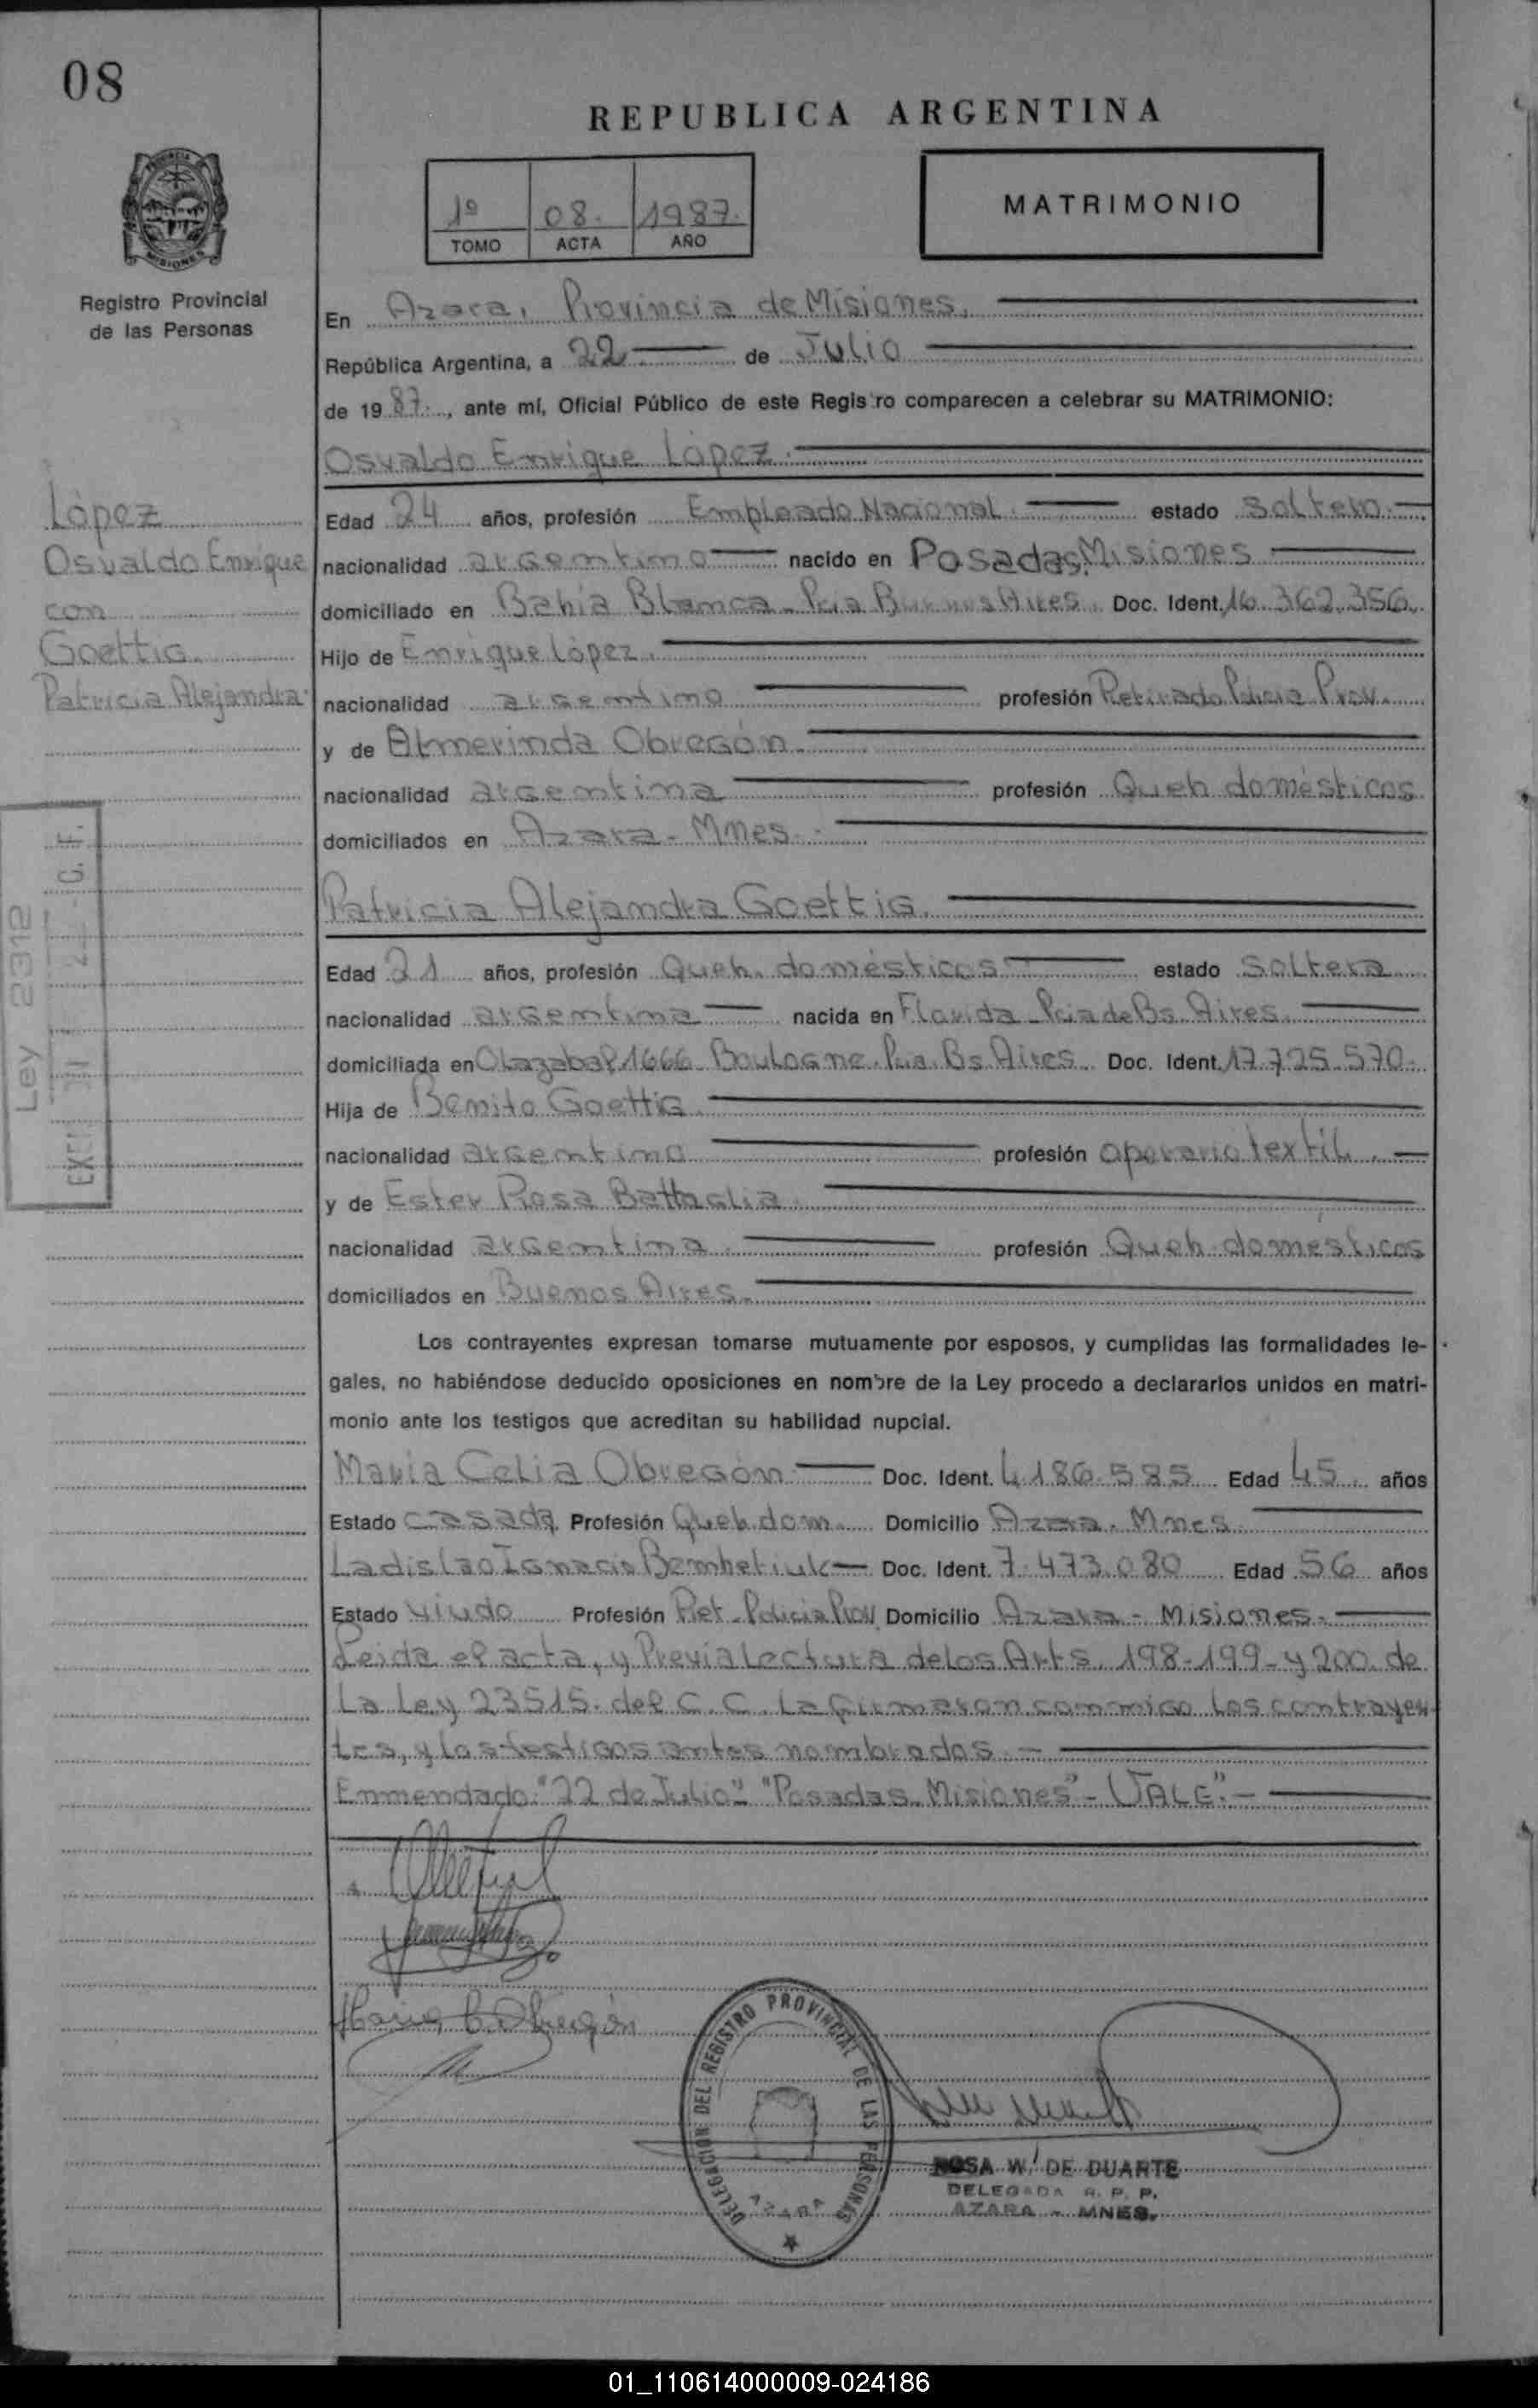 08
REPUBLICA ARGENTINA
1º 08. 1987.
TOMO ACTA AÑO
MATRIMONIO
PROVINCIA
MISIONES
Registro Provincial
de las Personas
En Azara, Provincia de Misiones.
República Argentina, a 22 de Julio
de 1987., ante mí, Oficial Público de este Registro comparecen a celebrar su MATRIMONIO:
Osvaldo Enrique López.
López
Osvaldo Enrique
con
Goettig.
Patricia Alejandra.
Edad 24 años, profesión Empleado Nacional estado soltero.
nacionalidad argentino nacido en Posadas, Misiones
domiciliado en Bahía Blanca - Pcia Buenos Aires. Doc. Ident. 16.362.356.
Hijo de Enrique López.
nacionalidad argentino profesión Retirado Policia Prov.
y de Almerinda Obregón.
nacionalidad argentina profesión Queh domésticos
domiciliados en Azara - Mnes.
Patricia Alejandra Goettig.
Edad 21 años, profesión Queh. domésticos estado soltera
nacionalidad argentina nacida en Florida - Pcia de Bs. Aires.
domiciliada en Olazabal 1666 Boulogne. Pcia. Bs. Aires. Doc. Ident. 17.725.570.
Hija de Benito Goettig.
nacionalidad argentino profesión operario textil.
y de Ester Rosa Battaglia.
nacionalidad argentina. profesión Queh. domésticos
domiciliados en Buenos Aires.
Ley 2312
G. F.
Los contrayentes expresan tomarse mutuamente por esposos, y cumplidas las formalidades le-
gales, no habiéndose deducido oposiciones en nombre de la Ley procedo a declararlos unidos en matri-
monio ante los testigos que acreditan su habilidad nupcial.
María Celia Obregón. Doc. Ident. 4.186.585 Edad 45 años
Estado casada Profesión Queh. dom. Domicilio Azara. Mnes.
Ladislao Ignacio Doc. Ident. 7.473.080 Edad 56 años
Estado viudo Profesión Ret. Policia Prov. Domicilio Azara - Misiones.
Leida el acta, y Previa Lectura de los Arts. 198-199-y 200. de
La Ley 23515. del C. C. La firmaron conmigo los contrayen
tes, y los testigos antes nombrados.
Enmendado: "22 de Julio" "Posadas Misiones" - VALE".
Maria C. Obregón
DELEGACION DEL REGISTRO PROVINCIAL DE LAS PERSONAS
AZARA
ROSA W. DE DUARTE
DELEGADA R. P. P.
AZARA - MNES.
01_110614000009-024186